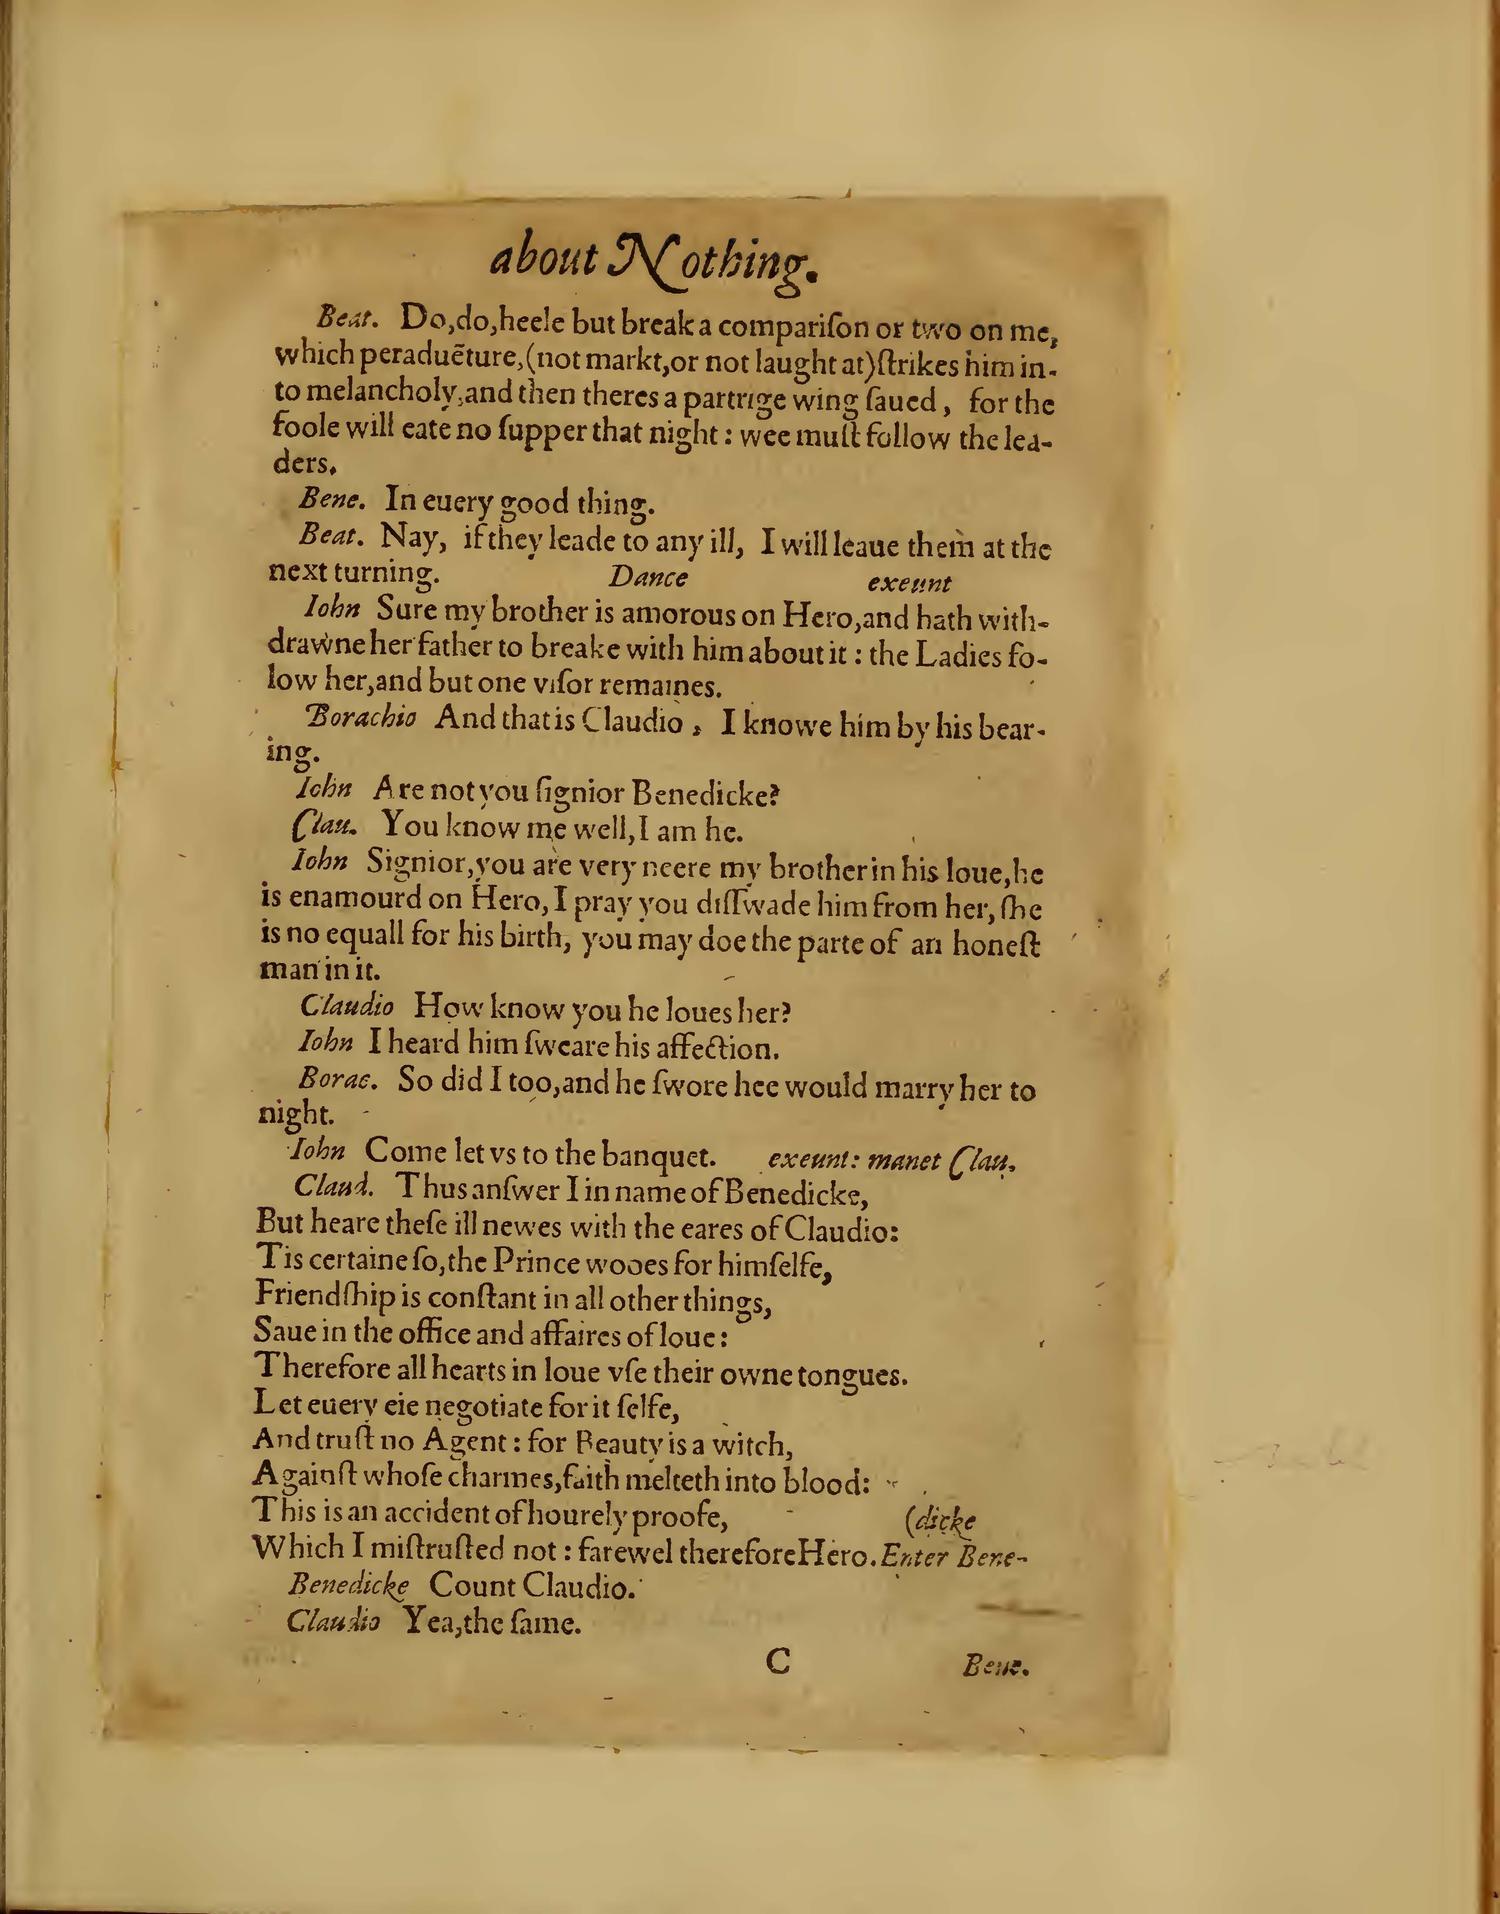 about Nothing.
Beat. Do,do,heele but break a compariſon or two on me,
which peraduēture,(not markt,or not laught at)ſtrikes him in-
to melancholy,and then theres a partrige wing ſaued, for the
foole will eate no ſupper that night: wee muſt follow the lea-
ders.
Bene. In euery good thing.
Beat. Nay, if they leade to any ill, I will leaue them at the
next turning. Dance exeunt
Iohn Sure my brother is amorous on Hero,and hath with-
drawne her father to breake with him about it: the Ladies fo-
low her,and but one viſor remaines.
Borachio And that is Claudio, I knowe him by his bear-
ing.
Iohn Are not you ſignior Benedicke?
Clau. You know me well,I am he.
Iohn Signior,you are very neere my brother in his loue,he
is enamourd on Hero, I pray you diſſwade him from her, ſhe
is no equall for his birth, you may doe the parte of an honeſt
man in it.
Claudio How know you he loues her?
Iohn I heard him ſweare his affection.
Borac. So did I too,and he ſwore hee would marry her to
night.
Iohn Come let vs to the banquet. exeunt: manet Clau.
Claud. Thus anſwer I in name of Benedicke,
But heare theſe ill newes with the eares of Claudio:
Tis certaine ſo,the Prince wooes for himſelfe,
Friendſhip is conſtant in all other things,
Saue in the office and affaires of loue:
Therefore all hearts in loue vſe their owne tongues.
Let euery eie negotiate for it ſelfe,
And truſt no Agent: for Beauty is a witch,
Againſt whoſe charmes,faith melteth into blood:
This is an accident of hourely proofe, (dicke
Which I miſtruſted not: farewel therefore Hero. Enter Bene-
Benedicke Count Claudio.
Claudio Yea,the ſame.
C Bene.